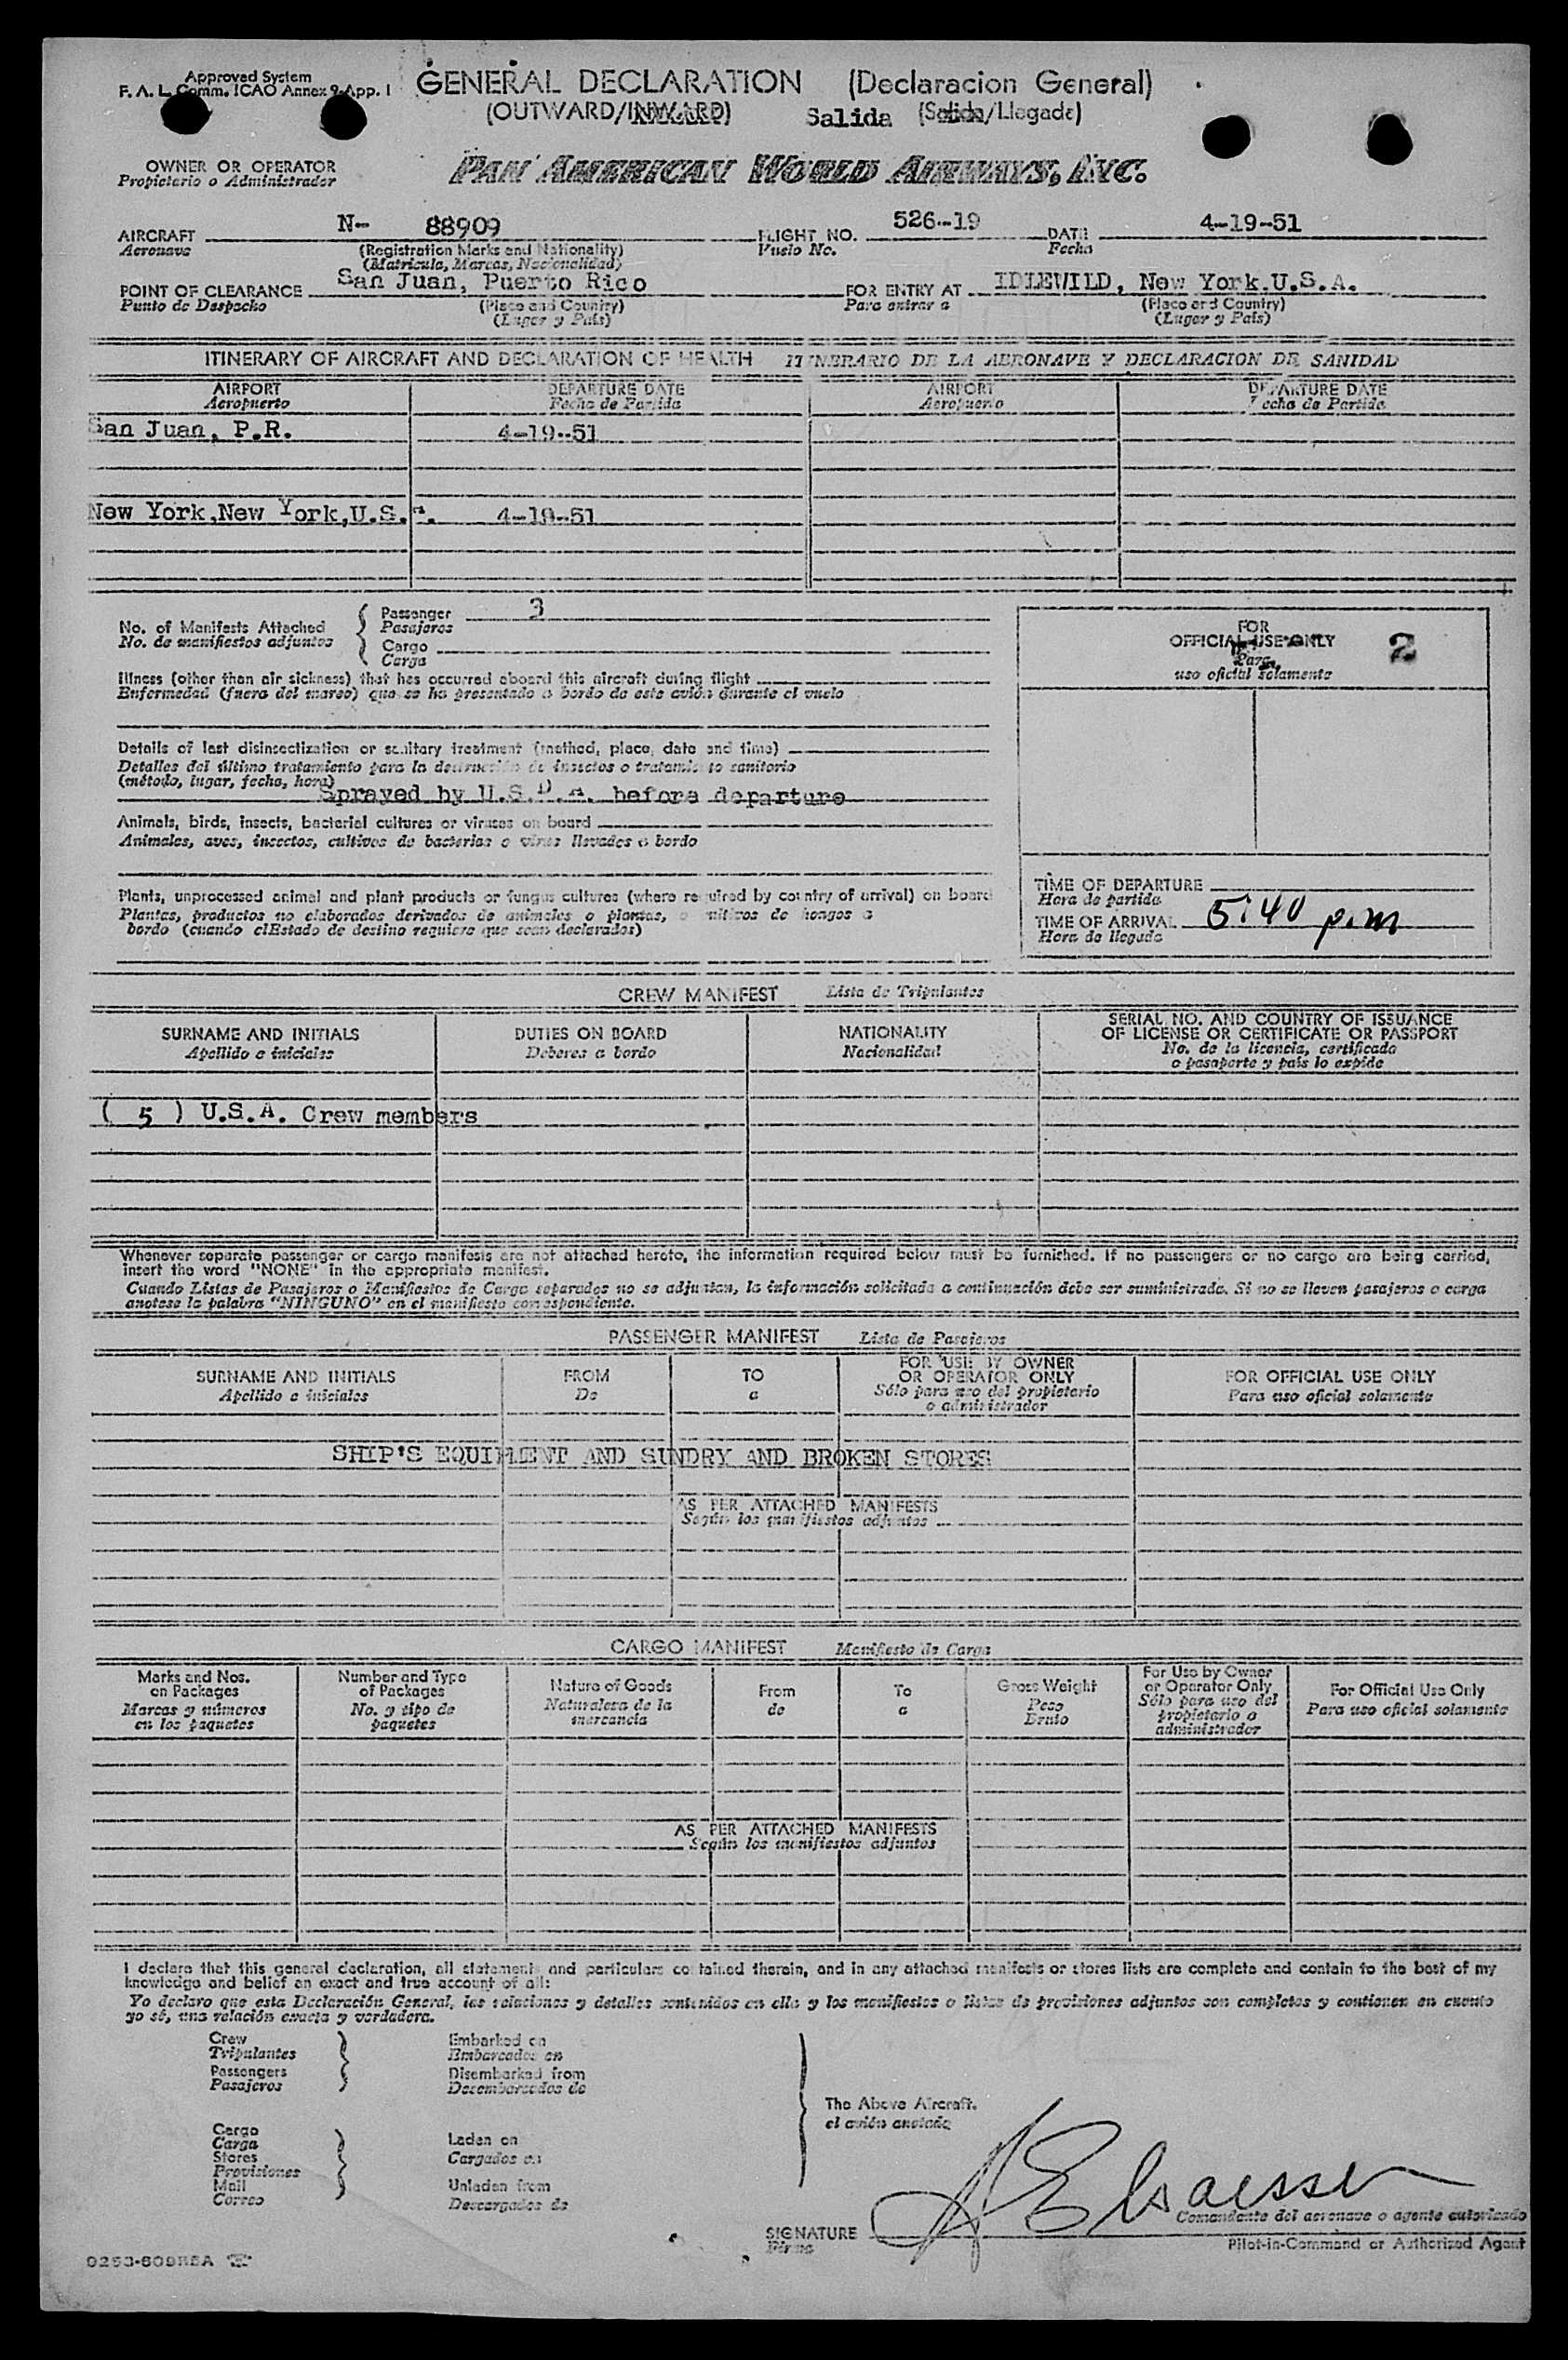 Approved System
F. A. L. Comm. ICAO Annex 9-App. 1
GENERAL DECLARATION (Declaracion General)
(OUTWARD/INWARD) Salida (Salida/Llegada)
OWNER OR OPERATOR
Propietario o Administrador
PAN AMERICAN WORLD AIRWAYS, INC.
AIRCRAFT N- 88909 FLIGHT NO. 526-19 DATE 4-19-51
Aeronave (Registration Marks and Nationality) Vuelo No. Fecha
(Matricula, Marcas, Nacionalidad)
POINT OF CLEARANCE San Juan, Puerto Rico FOR ENTRY AT IDLEWILD, New York.U.S.A.
Punto de Despacho (Place and Country) Para entrar a (Place and Country)
(Lugar y País) (Lugar y País)
ITINERARY OF AIRCRAFT AND DECLARATION OF HEALTH ITINERARIO DE LA AERONAVE Y DECLARACION DE SANIDAD
AIRPORT DEPARTURE DATE AIRPORT DEPARTURE DATE
Aeropuerto Fecha de Partida Aeropuerto Fecha de Partida
San Juan, P.R. 4-19-51
New York,New York,U.S.A. 4-19-51
No. of Manifests Attached
No. de manifiestos adjuntos
Passenger 3
Pasajeros
Cargo
Carga
Illness (other than air sickness) that has occurred aboard this aircraft during flight
Enfermedad (fuera del mareo) que se ha presentado a bordo de este avión durante el vuelo
Details of last disinsectization or sanitary treatment (method, place, date and time)
Detalles del último tratamiento para la destrucción de insectos o tratamiento sanitario
(método, lugar, fecha, hora)
Sprayed by U.S.D.A. before departure
Animals, birds, insects, bacterial cultures or viruses on board
Animales, aves, insectos, cultivos de bacterias o virus llevados a bordo
Plants, unprocessed animal and plant products or fungus cultures (where required by country of arrival) on board
Plantas, productos no elaborados derivados de animales o plantas, o cultivos de hongos a
bordo (cuando elEstado de destino requiere que sean declarados)
FOR
OFFICIAL USE ONLY 2
Para
uso oficial solamente
TIME OF DEPARTURE
Hora de partida
TIME OF ARRIVAL 5:40 p.m
Hora de llegada
CREW MANIFEST Lista de Tripulantes
SURNAME AND INITIALS DUTIES ON BOARD NATIONALITY SERIAL NO. AND COUNTRY OF ISSUANCE
OF LICENSE OR CERTIFICATE OR PASSPORT
Apellido e iniciales Deberes a bordo Nacionalidad No. de la licencia, certificado
o pasaporte y país lo expide
( 5 ) U.S.A. Crew members
Whenever separate passenger or cargo manifests are not attached hereto, the information required below must be furnished. If no passengers or no cargo are being carried,
insert the word "NONE" in the appropriate manifest.
Cuando Listas de Pasajeros o Manifiestos de Carga separados no se adjuntan, la información solicitada a continuación debe ser suministrada. Si no se lleven pasajeros o carga
anotese la palabra "NINGUNO" en el manifiesto correspondiente.
PASSENGER MANIFEST Lista de Pasajeros
SURNAME AND INITIALS FROM TO FOR USE BY OWNER
OR OPERATOR ONLY FOR OFFICIAL USE ONLY
Apellido e iniciales De a Sólo para uso del propietario
o administrador Para uso oficial solamente
SHIP'S EQUIPMENT AND SUNDRY AND BROKEN STORES
AS PER ATTACHED MANIFESTS
Según los manifiestos adjuntos
CARGO MANIFEST Manifiesto de Carga
Marks and Nos.
on Packages
Marcas y números
en los paquetes
Number and Type
of Packages
No. y tipo de
paquetes
Nature of Goods
Naturaleza de la
mercancía
From
de
To
a
Gross Weight
Peso
Bruto
For Use by Owner
or Operator Only
Sólo para uso del
propietario o
administrador
For Official Use Only
Para uso oficial solamente
AS PER ATTACHED MANIFESTS
Según los manifiestos adjuntos
I declare that this general declaration, all statements and particulars contained therein, and in any attached manifests or stores lists are complete and contain to the best of my
knowledge and belief an exact and true account of all:
Yo declaro que esta Declaración General, las relaciones y detalles contenidos en ella y los manifiestos o listas de provisiones adjuntos son completos y contienen en cuanto
yo sé, una relación exacta y verdadera.
Crew
Tripulantes
Passengers
Pasajeros
Embarked on
Embarcados en
Disembarked from
Desembarcados de
The Above Aircraft.
el avión anotado
Cargo
Carga
Stores
Provisiones
Mail
Correo
Laden on
Cargados en
Unladen from
Descargados de
Comandante del aeronave o agente autorizado
SIGNATURE
Firma
Pilot-in-Command or Authorized Agent